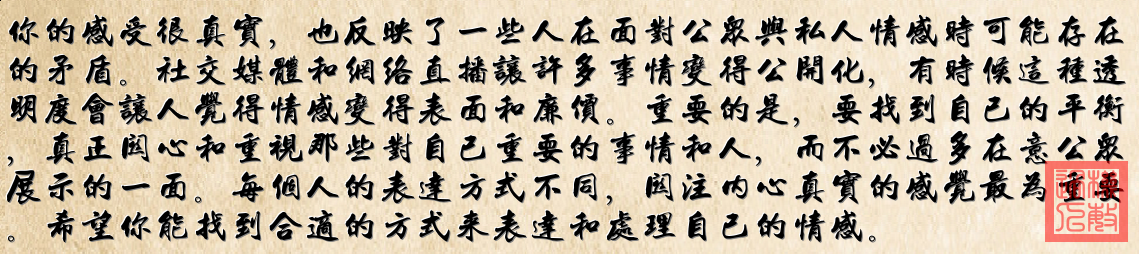 你的感受很真實，也反映了一些人在面對公眾與私人情感時可能存在
的矛盾。社交媒體和網絡直播讓許多事情變得公開化，有時候這種透
明度會讓人覺得情感變得表面和廉價。重要的是，要找到自己的平衡
，真正関心和重視那些對自己重要的事情和人，而不必過多在意公眾
展示的一面。每個人的表達方式不同，関注内心真實的感覺最為重要
。希望你能找到合適的方式來表達和處理自己的情感。